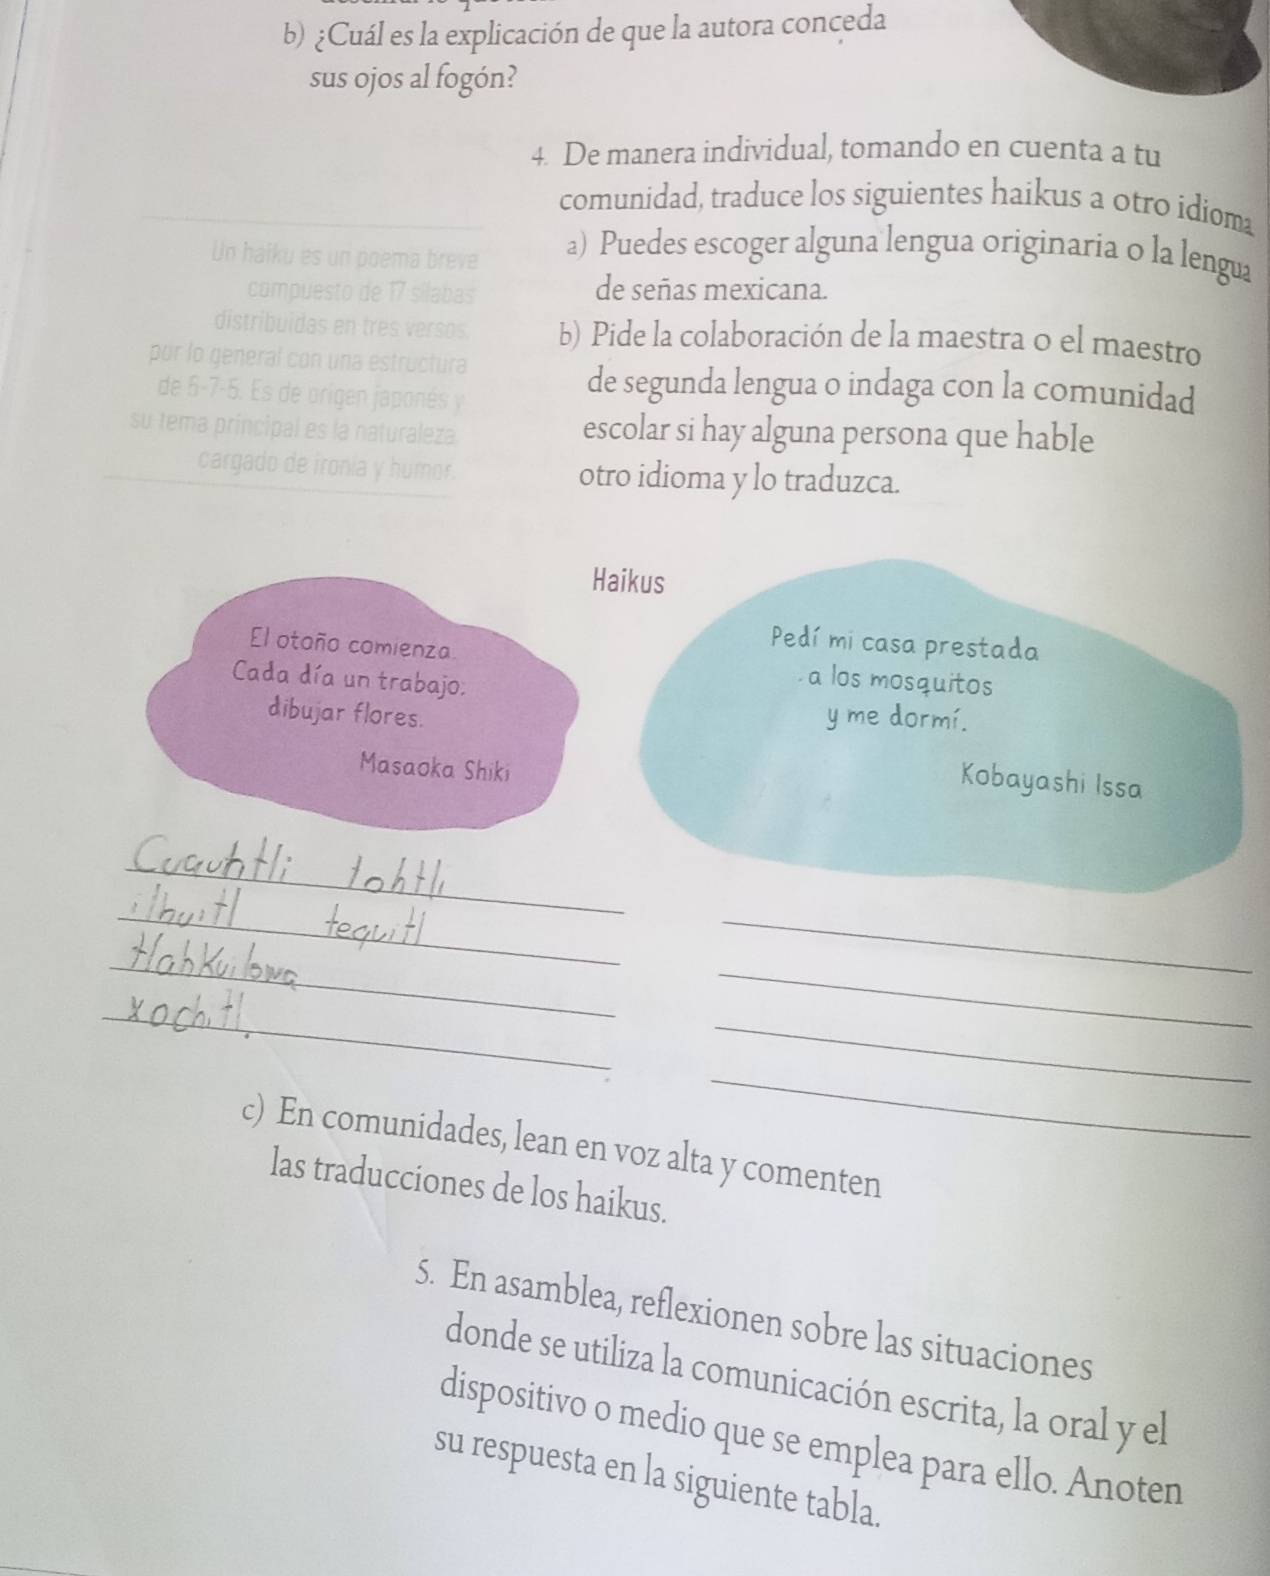 b) ¿Cuál es la explicación de que la autora conceda
sus ojos al fogón?
4. De manera individual, tomando en cuenta a tu
comunidad, traduce los siguientes haikus a otro idioma
a) Puedes escoger alguna lengua originaria o la lengua
de señas mexicana.
b) Pide la colaboración de la maestra o el maestro
de segunda lengua o indaga con la comunidad
escolar si hay alguna persona que hable
otro idioma y lo traduzca.
Un haiku es un poema breve
compuesto de 17 sílabas
distribuidas en tres versos,
por lo general con una estructura
de 5-7-5. Es de origen japonés y
su tema principal es la naturaleza
cargado de ironía y humor.
Haikus
El otoño comienza.
Cada día un trabajo:
dibujar flores.
Masaoka Shiki
Pedí mi casa prestada
a los mosquitos
y me dormí.
Kobayashi Issa
Cuauhtli tohtli
ilhuitl tequitl
tlahkuilowa
xochitl.
c) En comunidades, lean en voz alta y comenten
las traducciones de los haikus.
5. En asamblea, reflexionen sobre las situaciones
donde se utiliza la comunicación escrita, la oral y el
dispositivo o medio que se emplea para ello. Anoten
su respuesta en la siguiente tabla.